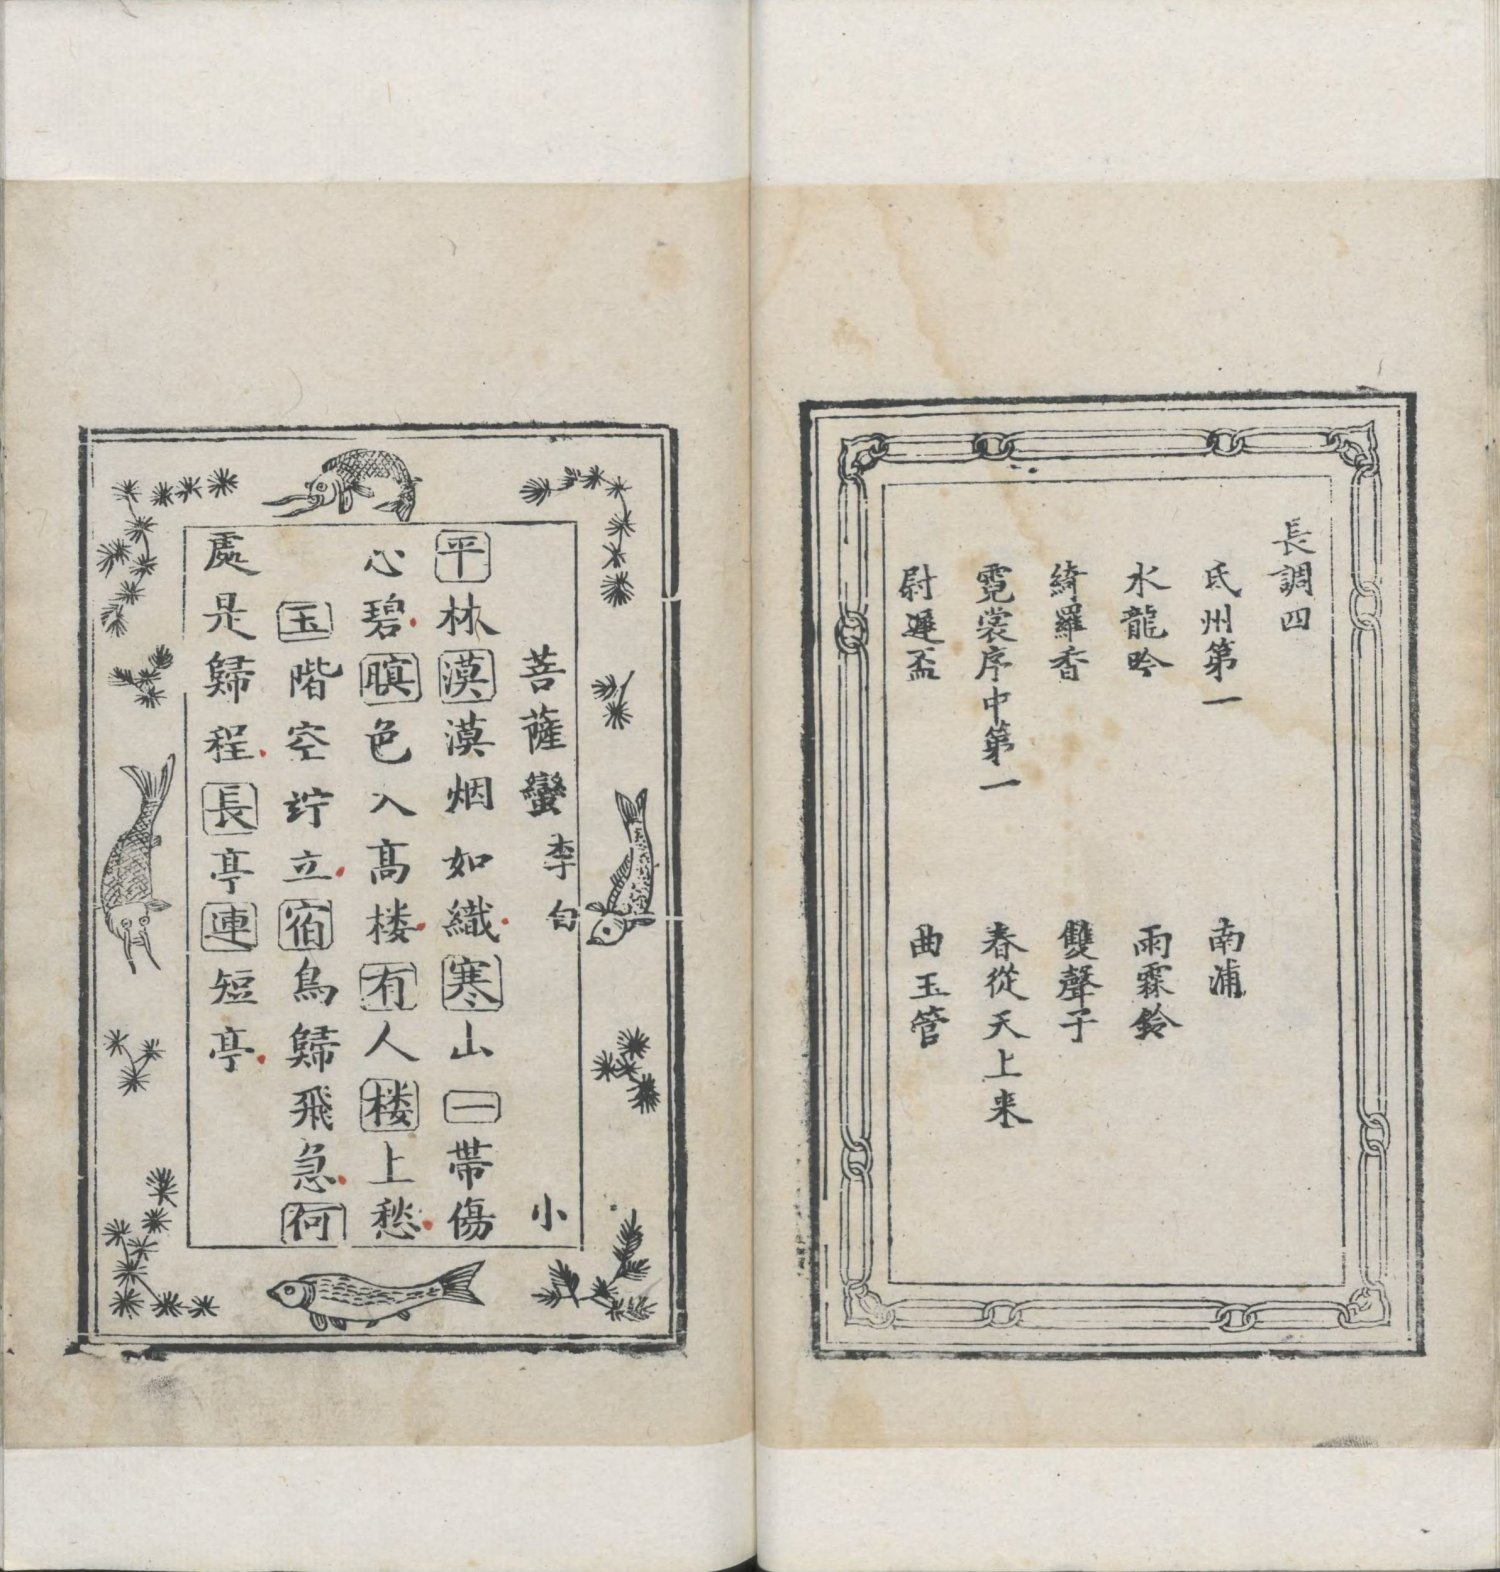 長調四
氐州第一 南浦
水龍吟 雨霖鈴
綺羅香 雙聲子
霓裳序中第一 春從天上来
尉遲盃 曲玉管
菩薩蠻 李白 小
平林漠漠烟如織寒山一帶傷
心碧暝色入髙楼有人楼上愁
玉階空竚立宿鳥歸飛急何
處是歸程長亭連短亭